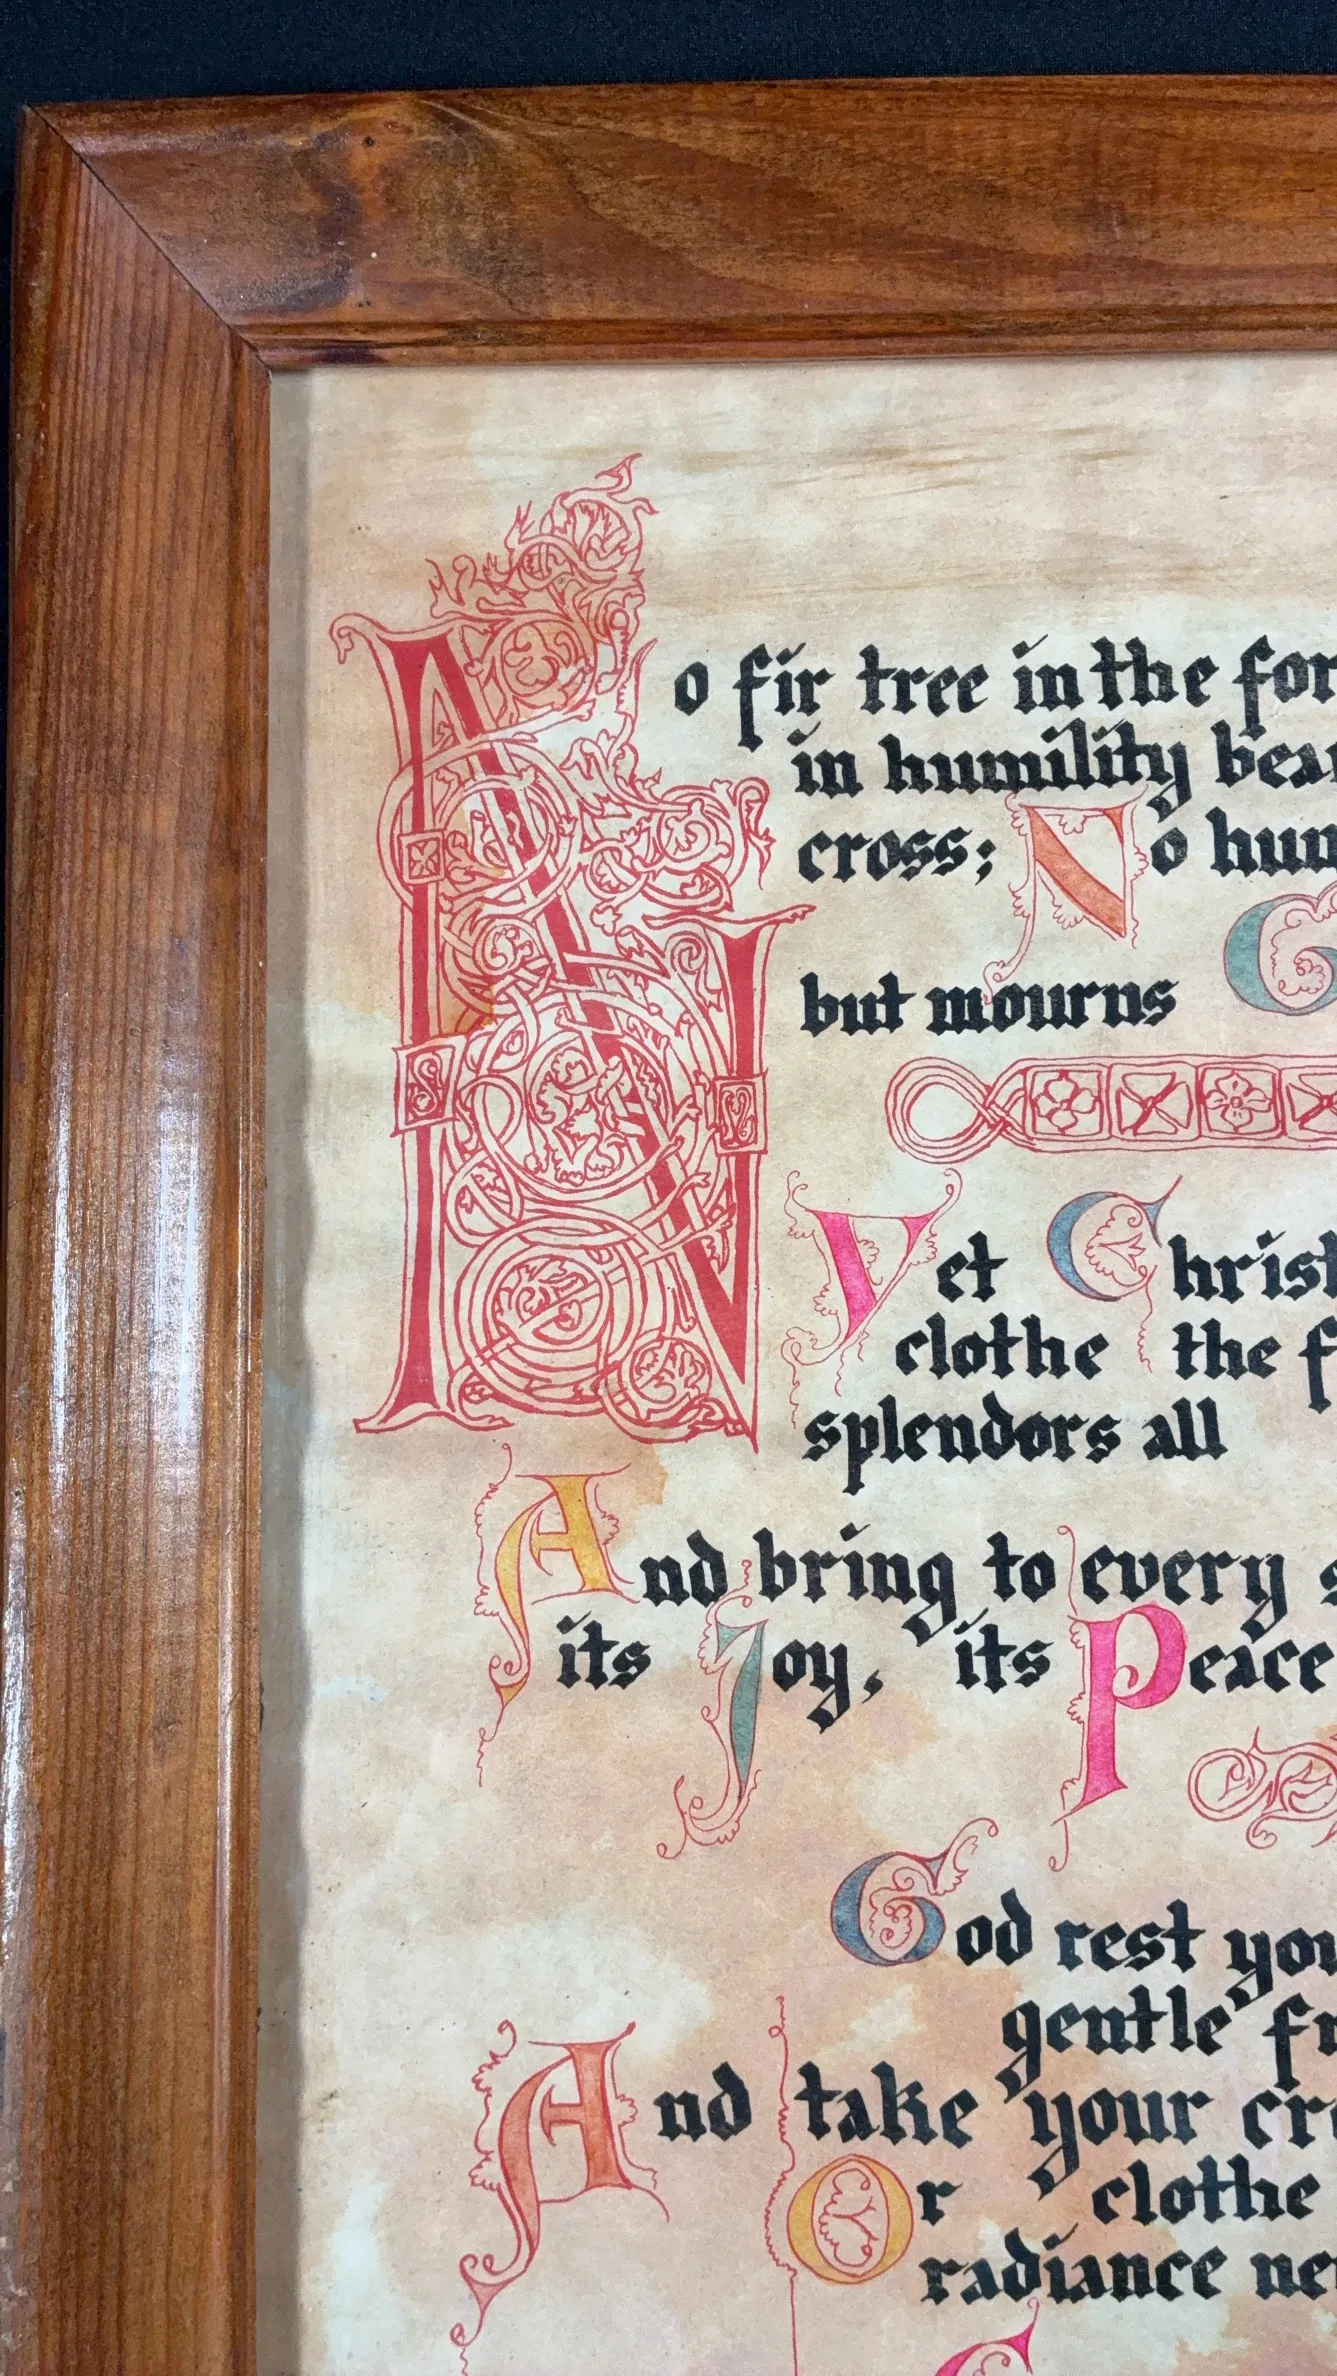 No fir tree in the for
in humility bea
cross; No hum
but mourns G
Yet Christ
clothe the f
splendors all
And bring to every s
its Joy, its Peace
God rest you
gentle fr
And take your cro
Or clothe
radiance ne